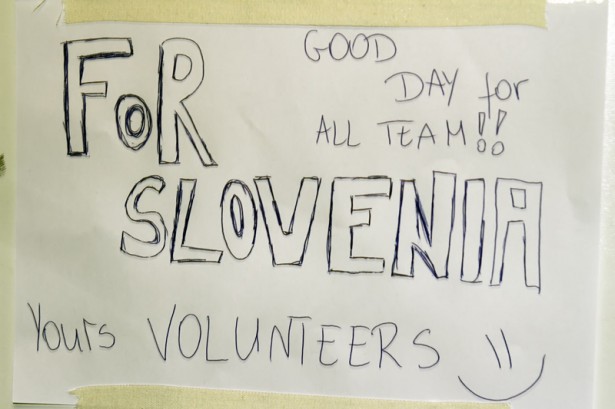 FoR
GOOD
DAY for
ALL TEAM!!
SLOVENIA
Yours VOLUNTEERS